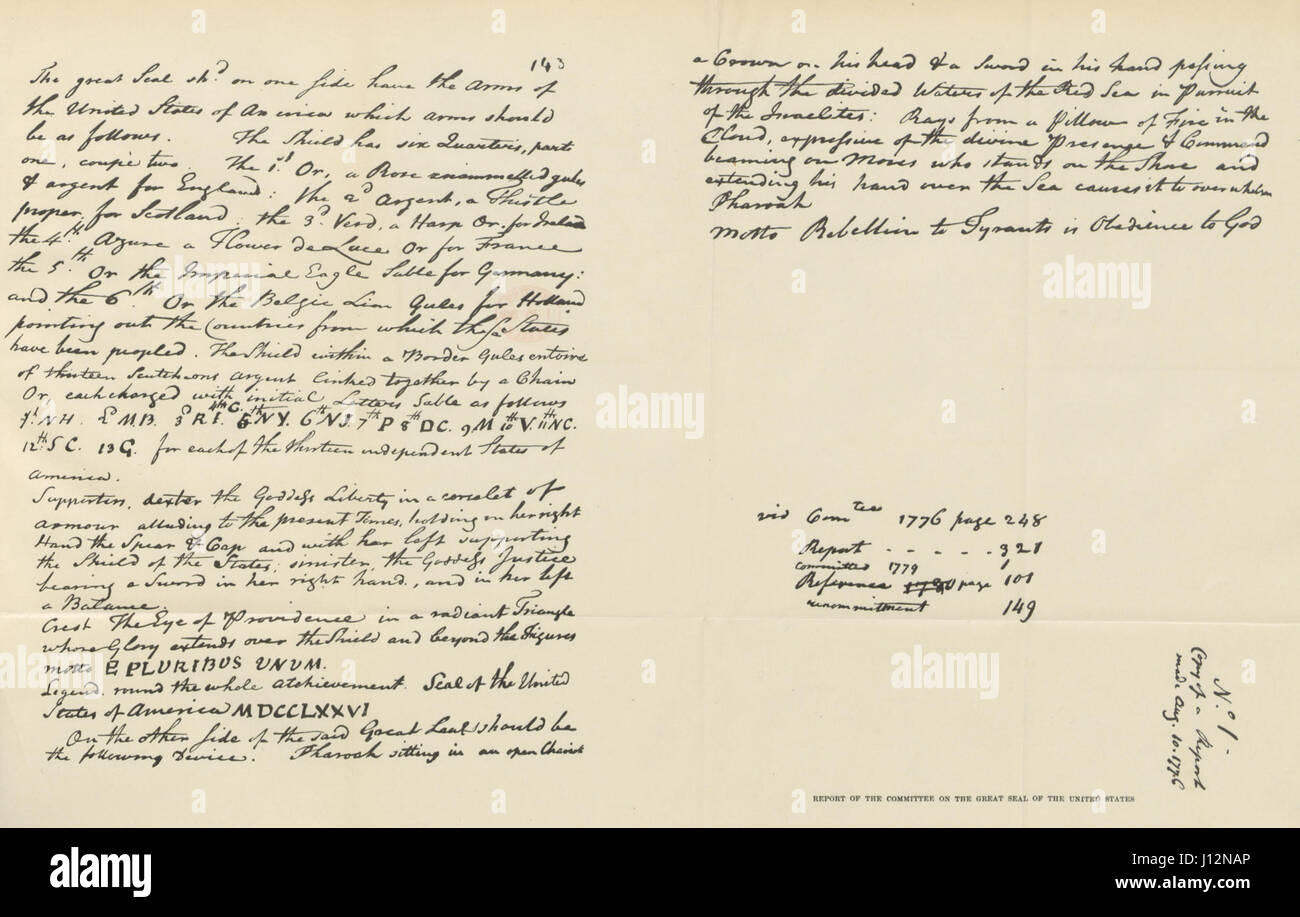 143
The great Seal shd on one side have the Arms of
the United States of America which arms should
be as follows. The Shield has six Quarters, parti
one, coupé two. The 1st Or, a Rose enammelled gules
& argent for England: the 2d Argent, a Thistle
proper, for Scotland: the 3d Verd, a Harp Or, for Ireland
the 4th Azure a Flower de Luce Or for France
the 5th Or the Imperial Eagle Sable for Germany:
and the 6th Or the Belgic Lion Gules for Holland
pointing out the Countries from which these States
have been peopled. The Shield within a Border Gules entoire
of thirteen Scutcheons argent linked together by a Chain
Or, each charged with initial Letters Sable as follows
1st NH. 2d M.B. 3d R I. 4th C. 5th NY. 6th NJ. 7th P 8th DC. 9. M 10th V. 11th NC.
12th S C. 13 G. for each of the thirteen independent States of
America.
Supporters, dexter the Goddess Liberty in a corselet of
armour alluding to the present Times, holding in her right
Hand the Spear & Cap and with her left supporting
the Shield of the States; sinister, the Goddess Justice
bearing a Sword in her right hand, and in her left
a Balance.
Crest The Eye of Providence in a radiant Triangle
whose Glory extends over the Shield and beyond the Figures
motto E PLURIBUS UNUM.
Legend, round the whole atchievement. Seal of the United
States of America MDCCLXXVI
On the other side of the said Great Seal should be
the following Device. Pharoah sitting in an open Chariot
a Crown on his head & a Sword in his hand passing
through the divided Waters of the Red Sea in Pursuit
of the Israelites: Rays from a Pillow of Fire in the
Cloud, expressive of the divine Presence & Command
beaming on Moses who stands on the Shore and
extending his hand over the Sea causes it to overwhelm
Pharoah
motto Rebellion to Tyrants is Obedience to God
vid Comtee 1776 page 248
Report - - - - - - 321
committed 1779 1
Reference page 101
recommittment 149
No. 1.
Copy of a Report
made Aug. 10. 1776
REPORT OF THE COMMITTEE ON THE GREAT SEAL OF THE UNITED STATES
alamy
alamy stock photo
Image ID: J12NAP
www.alamy.com